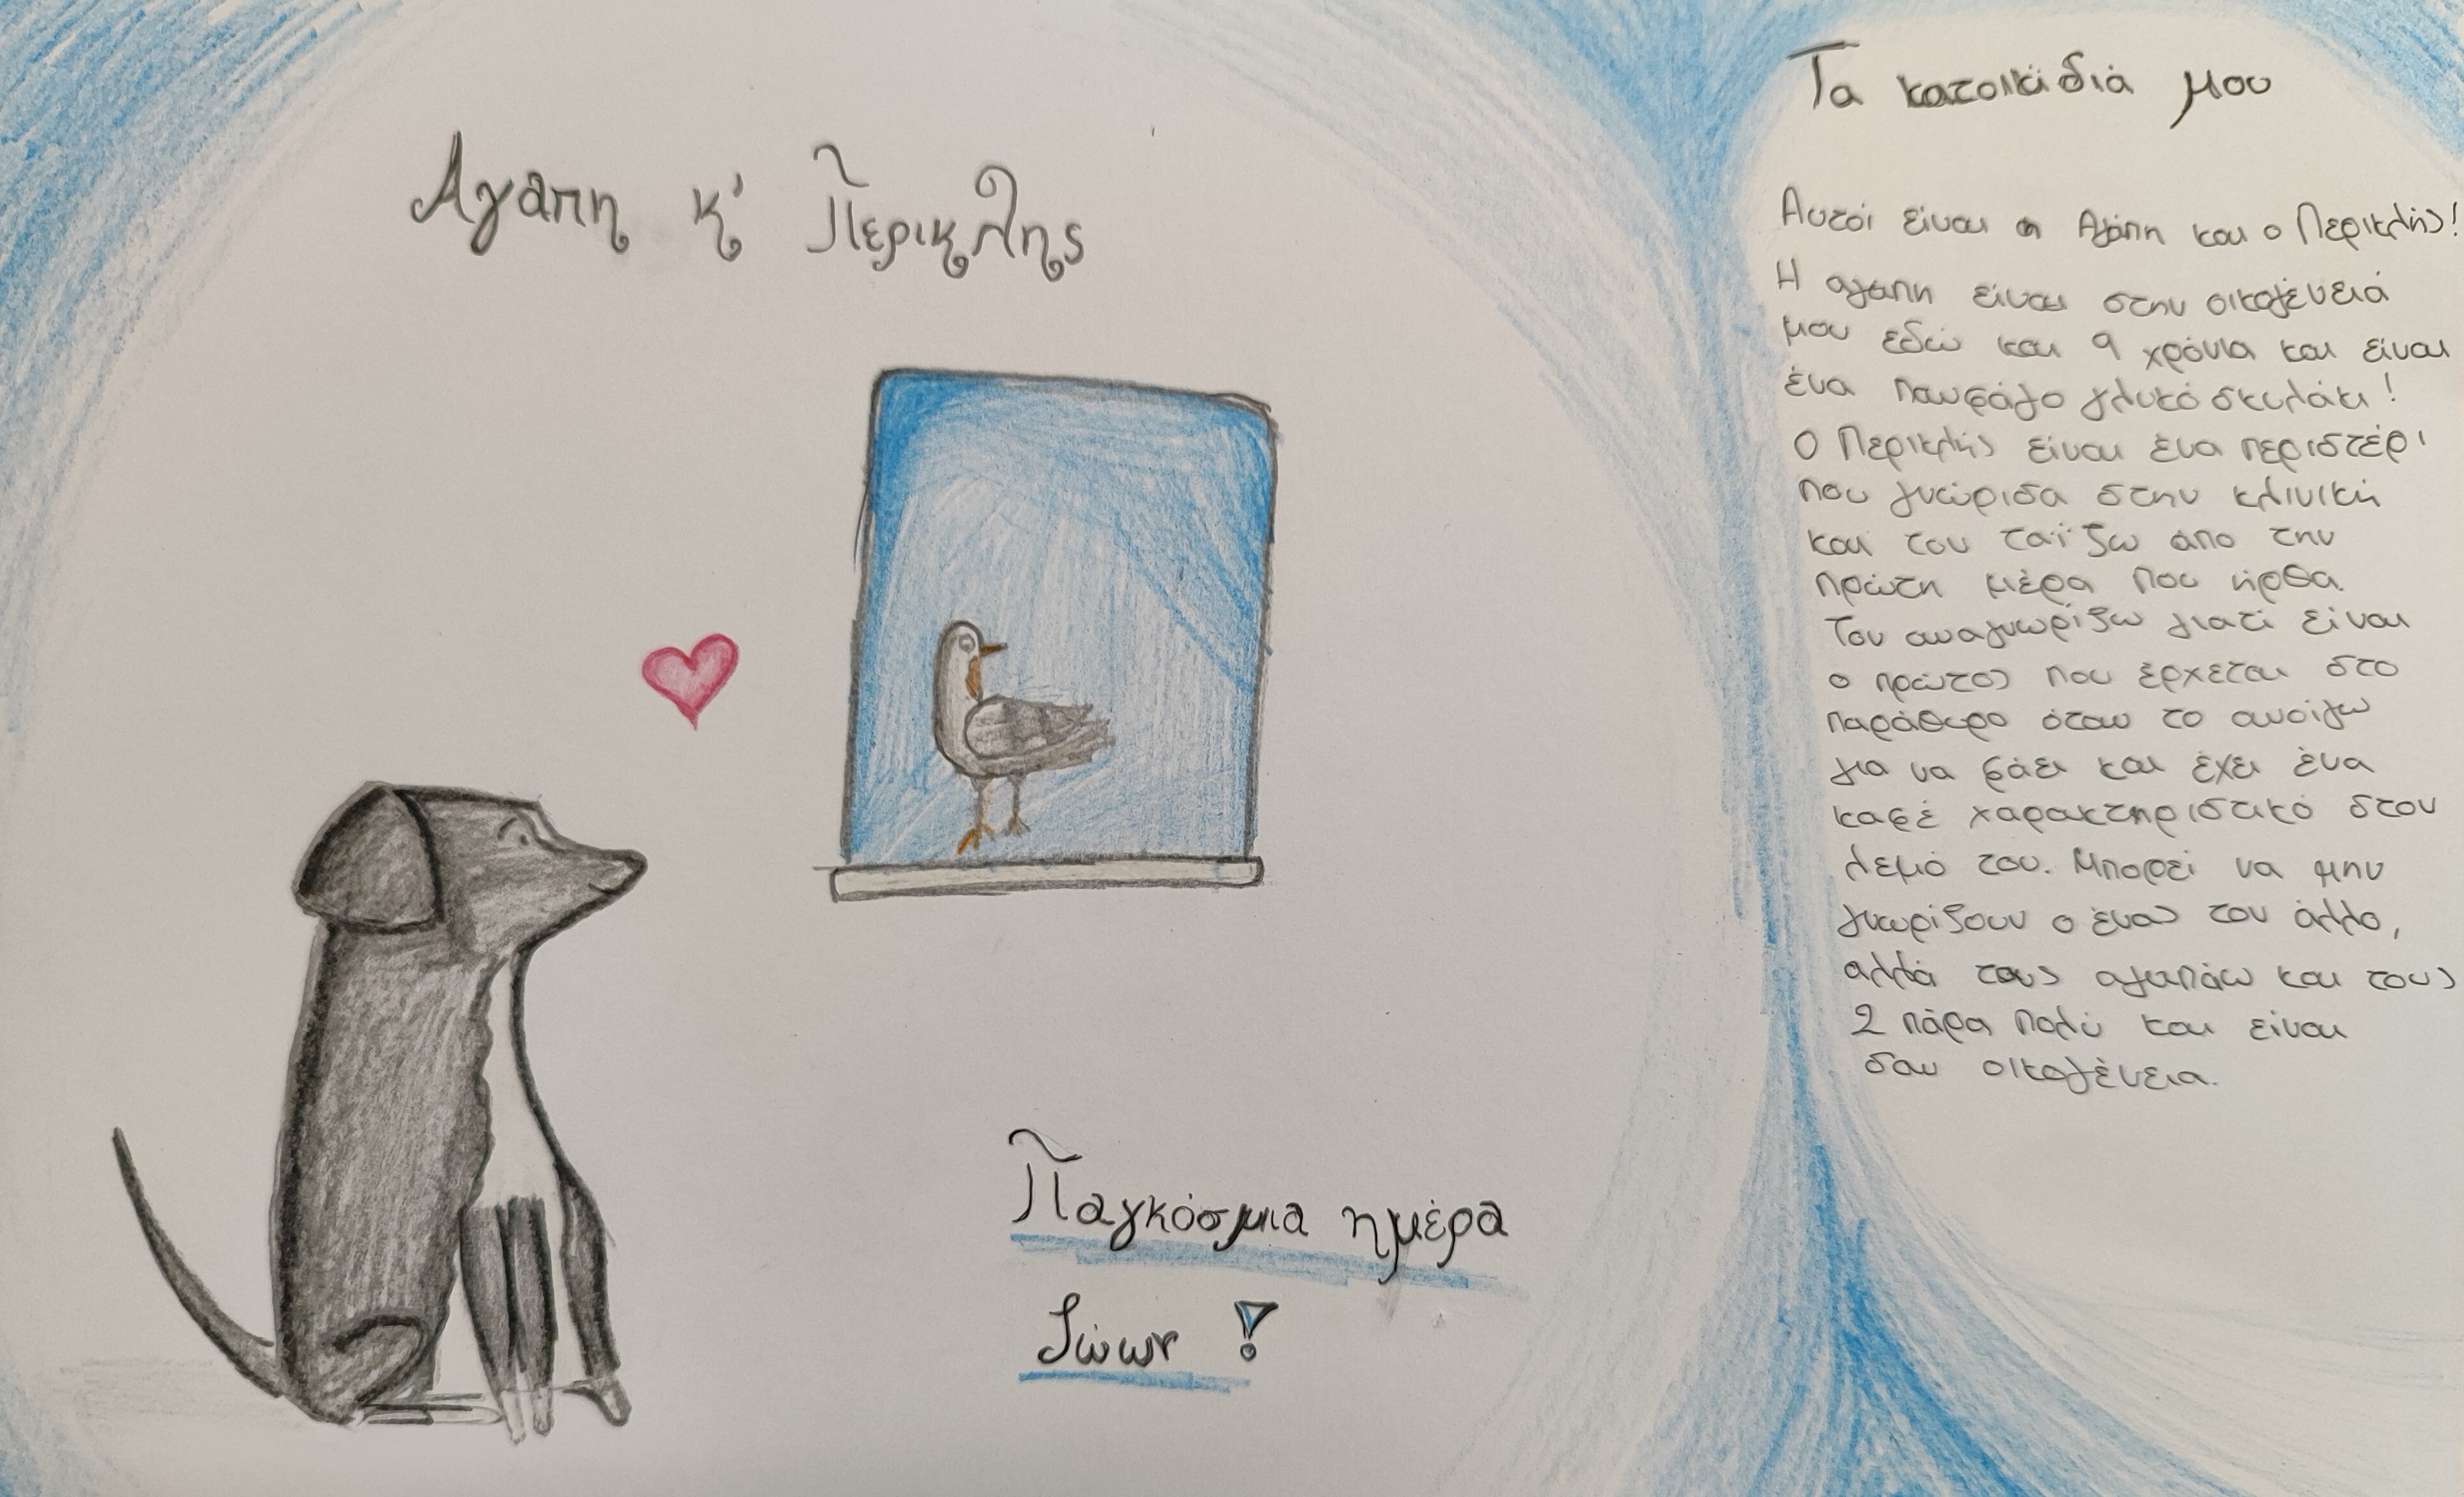 Αγάπη κ' Περικλης
Παγκόσμια ημέρα
Ζώων !
Τα κατοικίδιά μου
Αυτοί είναι η Αγάπη και ο Περικλής!
Η αγάπη είναι στην οικογένειά
μου εδώ και 9 χρόνια και είναι
ένα πανέφάγο γλυκό σκυλάκι!
Ο Περικλής είναι ένα περιστέρι
που γνώρισα στην κλινική
και τον ταΐζω απο την
πρώτη μέρα που ήρθα.
Τον αναγνωρίζω γιατί είναι
ο πρώτος που έρχεται στο
παράθυρο όταν το ανοίγω
για να φάει και έχει ένα
καφέ χαρακτηριστικό στον
λεμό του. Μπορεί να μην
γνωρίζουν ο ένας τον άλλο,
αλλά τους αγαπάω και τους
2 πάρα πολύ και είναι
σαν οικογένεια.